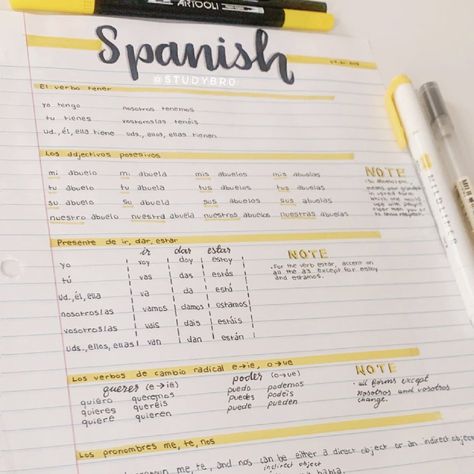 ARTOOLI
Spanish
@STUDYBRD
El verbo tener
yo tengo nosotros tenemos
tu tienes vosotros/as tenéis
ud., él, ella tiene uds., ellos, ellas tienen
Los adjectivos posesivos
mi abuelo mi abuela mis abuelos mis abuelas
tu abuelo tu abuela tus abuelos tus abuelas
su abuelo su abuela sus abuelos sus abuelas
nuestro abuelo nuestra abuela nuestros abuelos nuestras abuelas
NOTE
Presente de ir, dar, estar
ir dar estar
yo voy doy estoy
tú vas das estás
ud., él, ella va da está
nosotros/as vamos damos estamos
vosotros/as vais dais estáis
uds., ellos, ellas van dan están
NOTE
For the verb estar, accent on
all the as. Except for estoy
and estamos.
Los verbos de cambio radical e→ie, o→ue
querer (e→ie) poder (o→ue)
quiero queremos puedo podemos
quieres queréis puedes podéis
quiere quieren puede pueden
NOTE
all forms except
nosotros and vosotros
change.
Los pronombres me, te, nos
me, te, and nos can be either a direct object or an indirect object
indirect object
MILDLINER